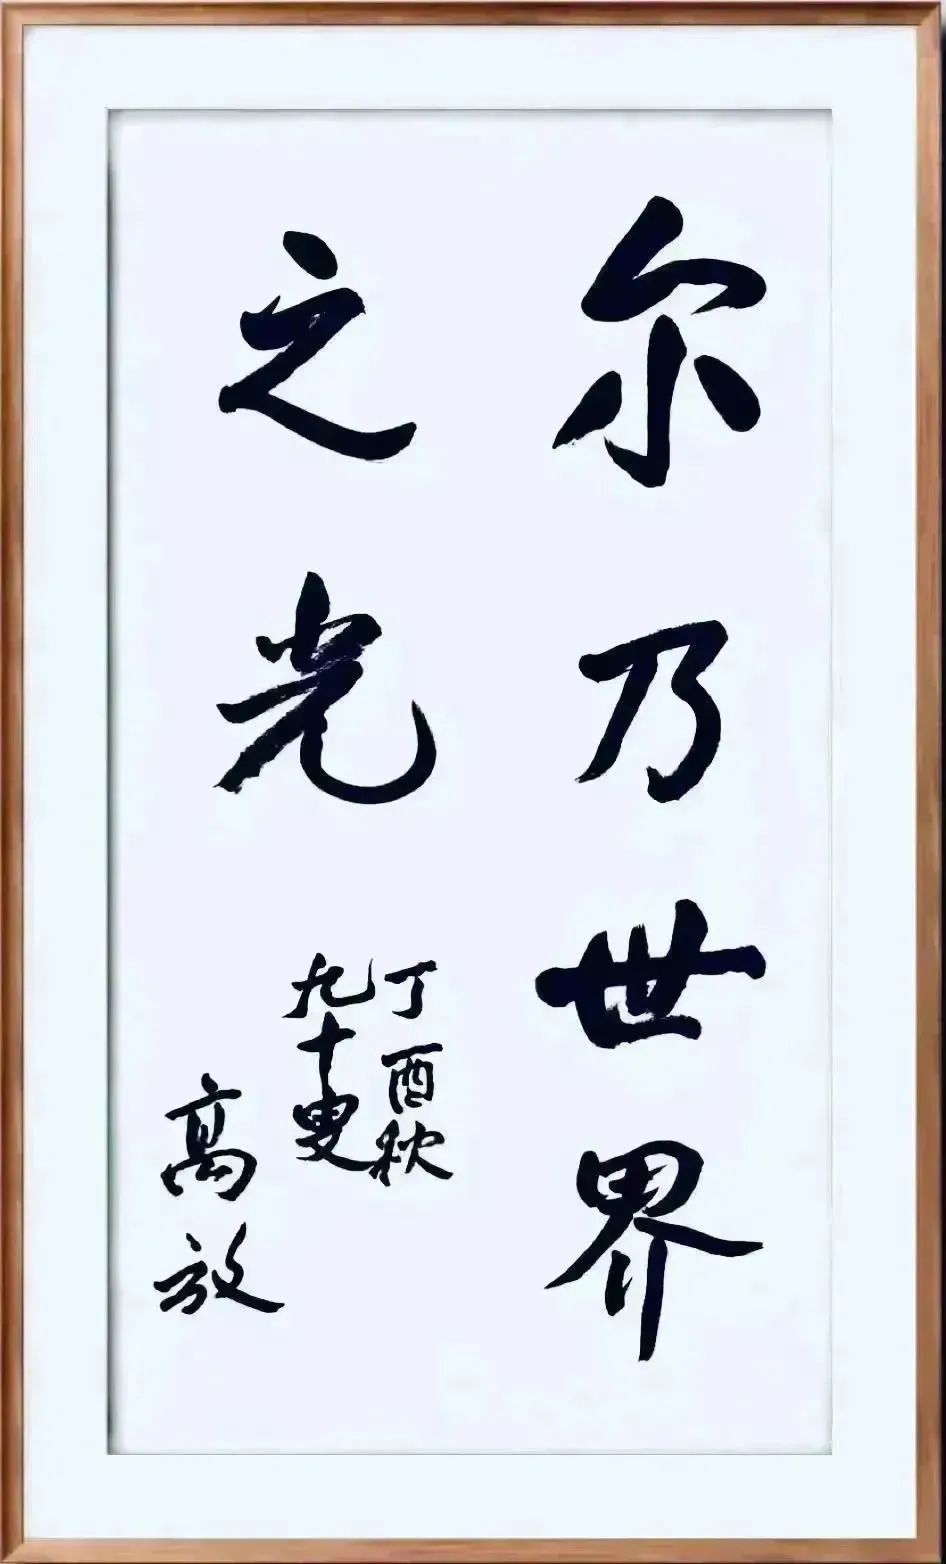 尔乃世界
之光
丁酉秋
九十叟
高放